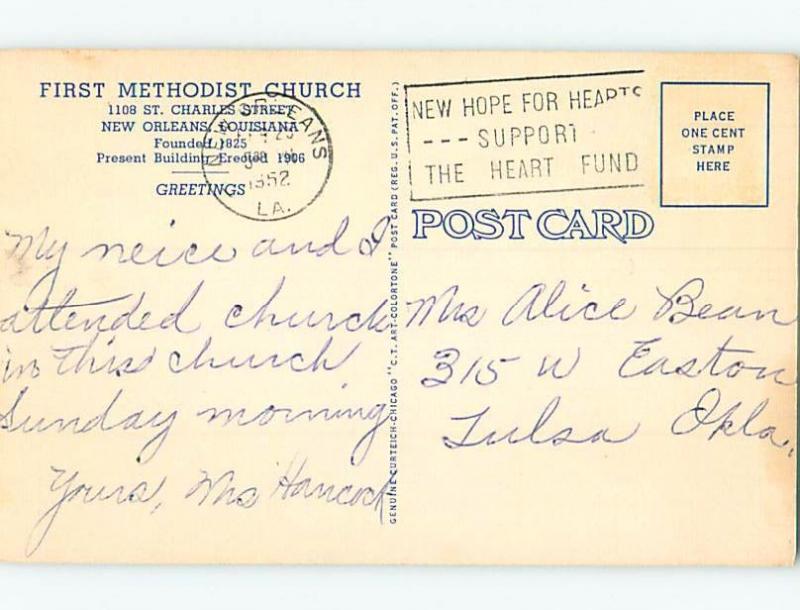 FIRST METHODIST CHURCH
1108 ST. CHARLES STREET
NEW ORLEANS, LOUISIANA
Founded 1825
Present Building Erected 1906
GREETINGS
NEW ORLEANS
1952
LA.
NEW HOPE FOR HEARTS
--- SUPPORT
THE HEART FUND
PLACE
ONE CENT
STAMP
HERE
POST CARD
GENUINE CURTEICH-CHICAGO "C.T. ART-COLORTONE" POST CARD (REG. U.S. PAT. OFF.)
My neice and I
attended church
in this church
Sunday morning
Yours, Mrs Hancock
Mrs Alice Bean
315 W Easton
Tulsa Okla.